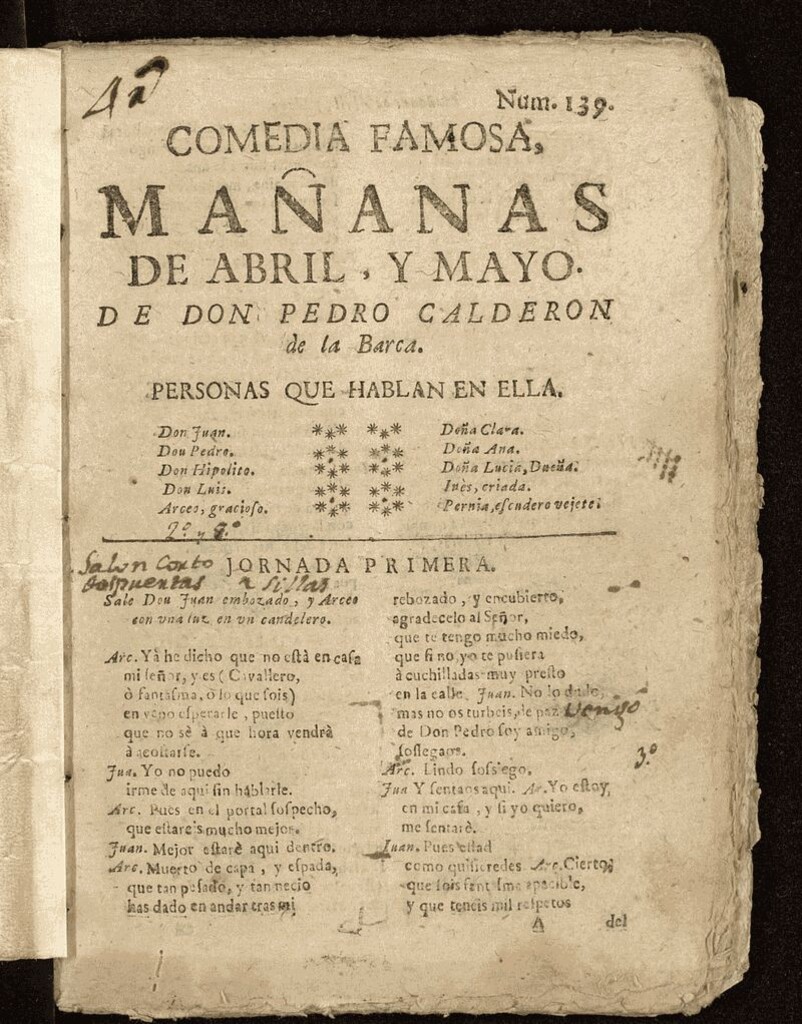 4ª
Num. 139.
COMEDIA FAMOSA,
MAÑANAS
DE ABRIL, Y MAYO.
DE DON PEDRO CALDERON
de la Barca.
PERSONAS QUE HABLAN EN ELLA.
Don Juan.
Don Pedro.
Don Hipolito.
Don Luis.
Arceo, gracioso.
Doña Clara.
Doña Ana.
Doña Lucia, Dueña.
Inès, criada.
Pernia, escudero vejete.
2º y
Salon Corto
JORNADA PRIMERA.
dospuertas 2 sillas
Sale Don Juan embozado, y Arceo
con vna luz en vn candelero.
Arc. Yà he dicho que no està en casa
mi señor, y es (Cavallero,
ò fantasma, ò lo que sois)
en vano esperarle, puesto
que no sè à que hora vendrà
à acostarse.
Jua. Yo no puedo
irme de aqui sin hablarle.
Arc. Pues en el portal sospecho,
que estareis mucho mejor.
Juan. Mejor estarè aqui dentro.
Arc. Muerto de capa, y espada,
que tan pesado, y tan necio
has dado en andar tras mi
rebozado, y encubierto,
agradecelo al Señor,
que te tengo mucho miedo,
que si no yo te pusiera
à cuchilladas muy presto
en la calle. Juan. No lo dudo,
mas no os turbeis, de paz vengo
de Don Pedro soy amigo,
3º
sossegaos.
Arc. Lindo sossiego.
Jua Y sentaos aqui. Ar. Yo estoy,
en mi casa, y si yo quiero,
me sentarè.
Juan. Pues estad
como quisieredes Arc. Cierto,
que sois fantasma apacible,
y que teneis mil respetos
A del